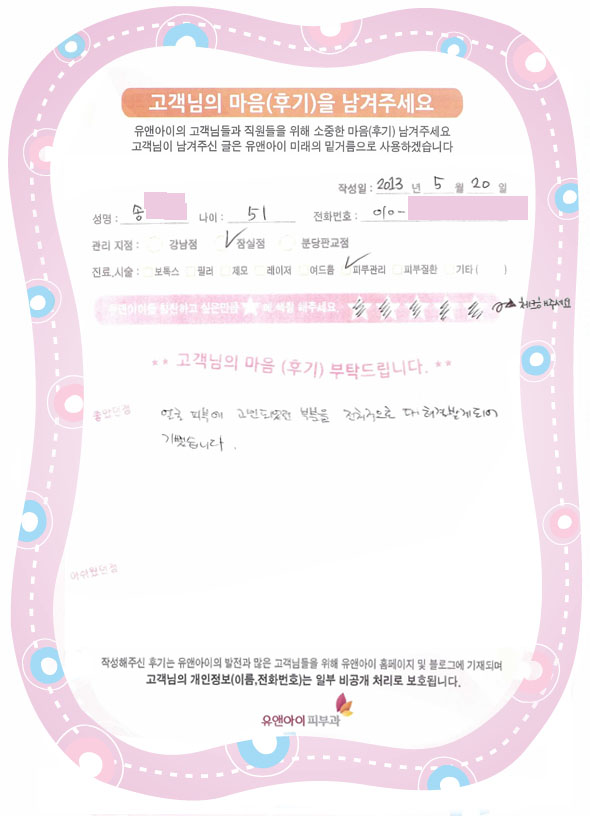 고객님의 마음(후기)을 남겨주세요
유앤아이의 고객님들과 직원들을 위해 소중한 마음(후기) 남겨주세요
고객님이 남겨주신 글은 유앤아이 미래의 밑거름으로 사용하겠습니다
작성일 : 2013 년 5 월 20 일
성명 : 송 나이 : 51 전화번호 : 010-
관리 지점 : 강남점 잠실점 분당판교점
진료,시술 : 보톡스 필러 제모 레이저 여드름 피부관리 피부질환 기타 ( )
유앤아이를 칭찬하고 싶은만큼 에 색칠 해주세요 체크해주세요
** 고객님의 마음 (후기) 부탁드립니다. **
좋았던점 얼굴 피부에 고민되었던 부분을 전체적으로 다 해결받게되어
기뻤습니다.
아쉬웠던점
작성해주신 후기는 유앤아이의 발전과 많은 고객님들을 위해 유앤아이 홈페이지 및 블로그에 기재되며
고객님의 개인정보(이름,전화번호)는 일부 비공개 처리로 보호됩니다.
유앤아이피부과